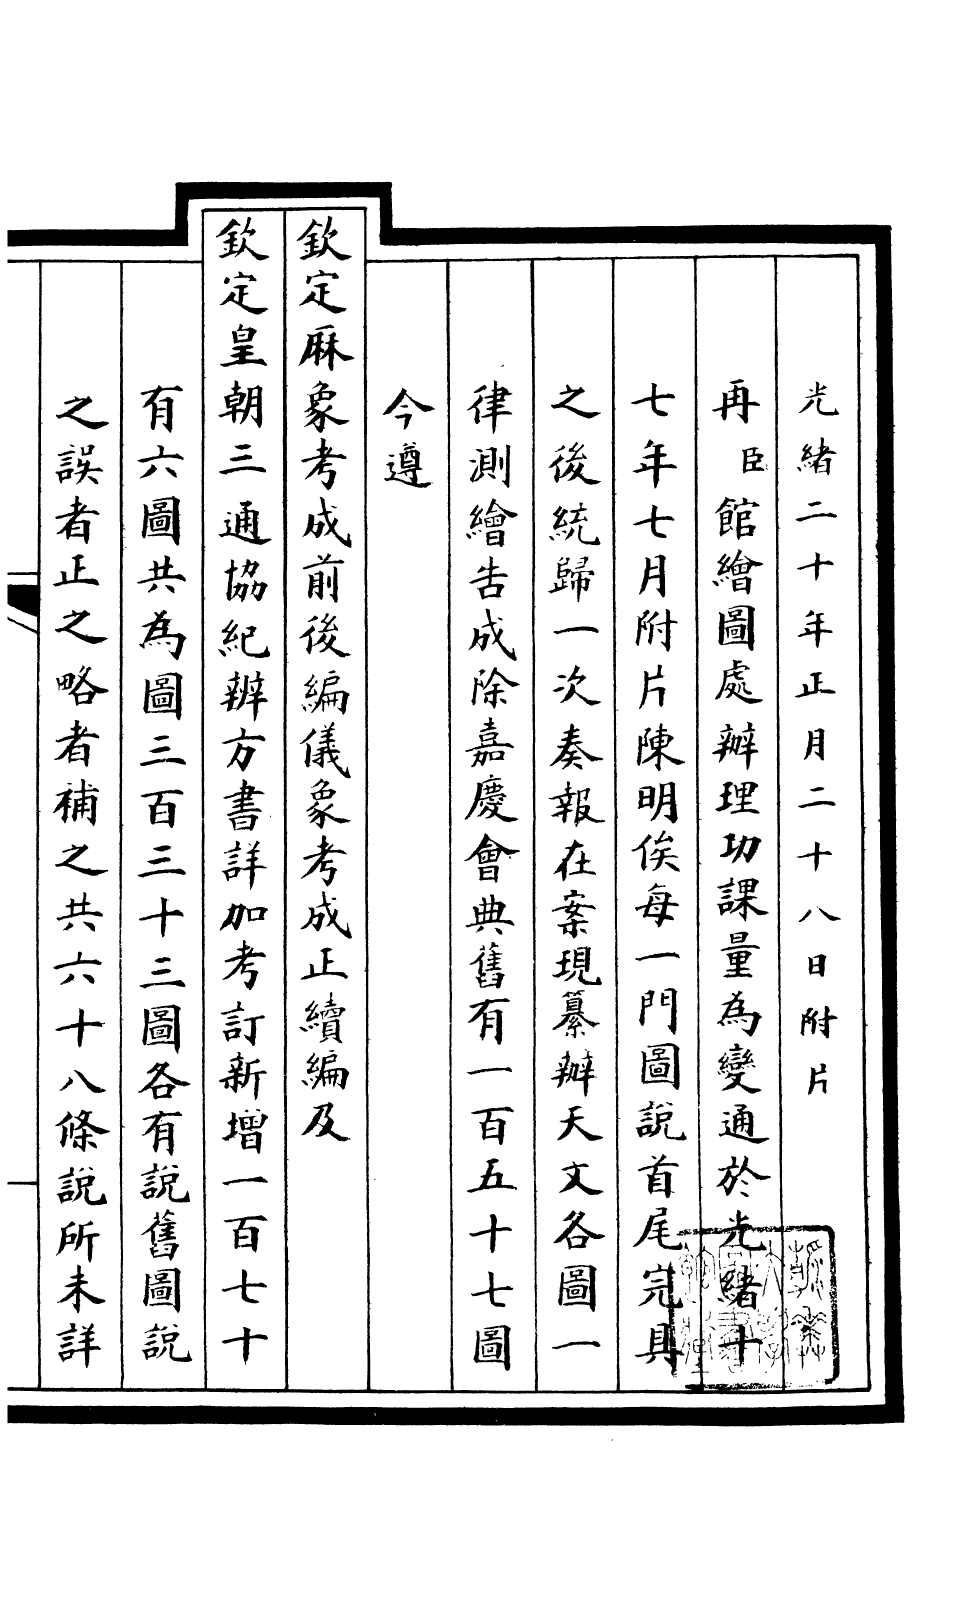 光緒二十年正月二十八日附片
再臣館繪圖處辦理功課量為變通於光緒十
七年七月附片陳明俟每一門圖說首尾完具
之後統歸一次奏報在案現纂辦天文各圖一
律測繪告成除嘉慶會典舊有一百五十七圖
今遵
欽定厤象考成前後編儀象考成正續編及
欽定皇朝三通協紀辨方書詳加考訂新增一百七十
有六圖共為圖三百三十三圖各有說舊圖說
之誤者正之略者補之共六十八條說所未詳